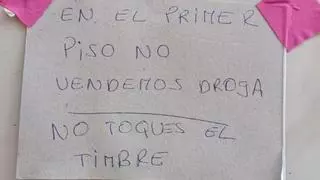 EN EL PRIMER
PISO NO
VENDEMOS DROGA
NO TOQUES EL
TIMBRE